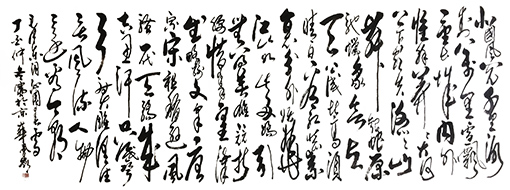 北国风光千里冰
封万里雪飘
望长城内外
惟馀莽莽大河
上下顿失滔滔山
舞银蛇原
驰蜡象欲与
天公试比高须
晴日看红装素
裹分外妖娆
江山如此多娇引
无数英雄竞折
腰惜秦皇汉
武略输文采唐
宗宋祖稍逊风
骚一代天骄成
吉思汗只识弯
弓射大雕俱往
矣数风流人物
还看今朝
毛泽东词沁园春雪
丁亥仲冬于京华